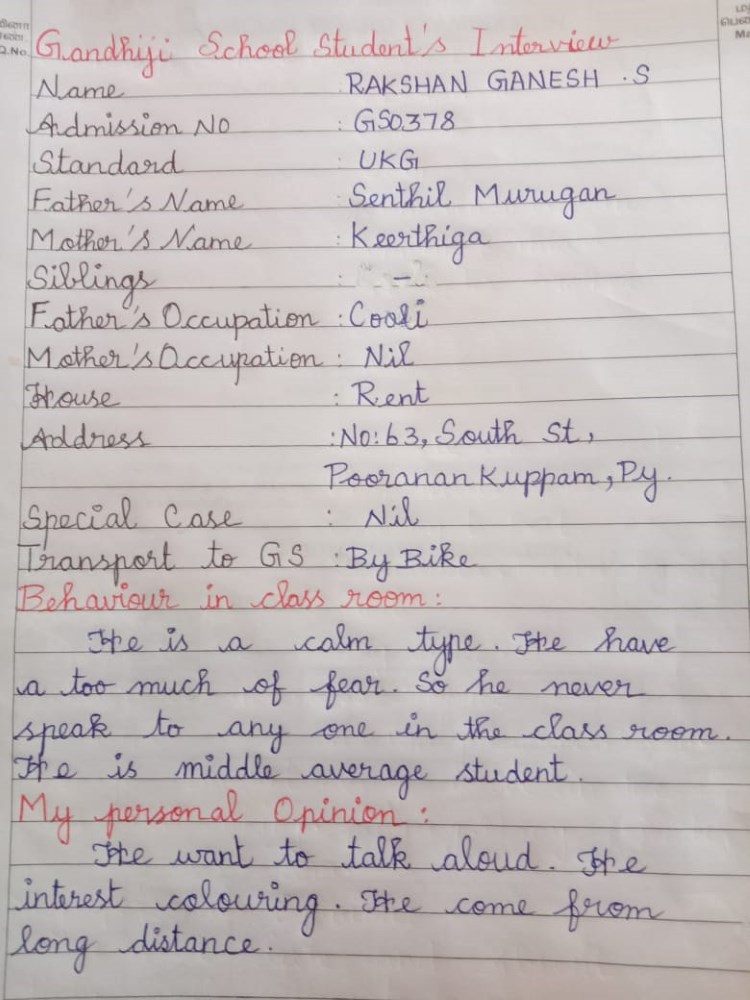 Gandhiji School Student's Interview
Name RAKSHAN GANESH .S
Admission No : GS0378
Standard : UKG
Father's Name : Senthil Murugan
Mother's Name : Keerthiga
Siblings : -
Father's Occupation : Cooli
Mother's Occupation : Nil
House : Rent
Address : No: 63, South St,
Pooranan Kuppam, Py.
Special Case : Nil
Transport to GS : By Bike
Behaviour in class room :
He is a calm type. He have
a too much of fear. So he never
speak to any one in the class room.
He is middle average student.
My personal Opinion :
He want to talk aloud. He
interest colouring. He come from
long distance.